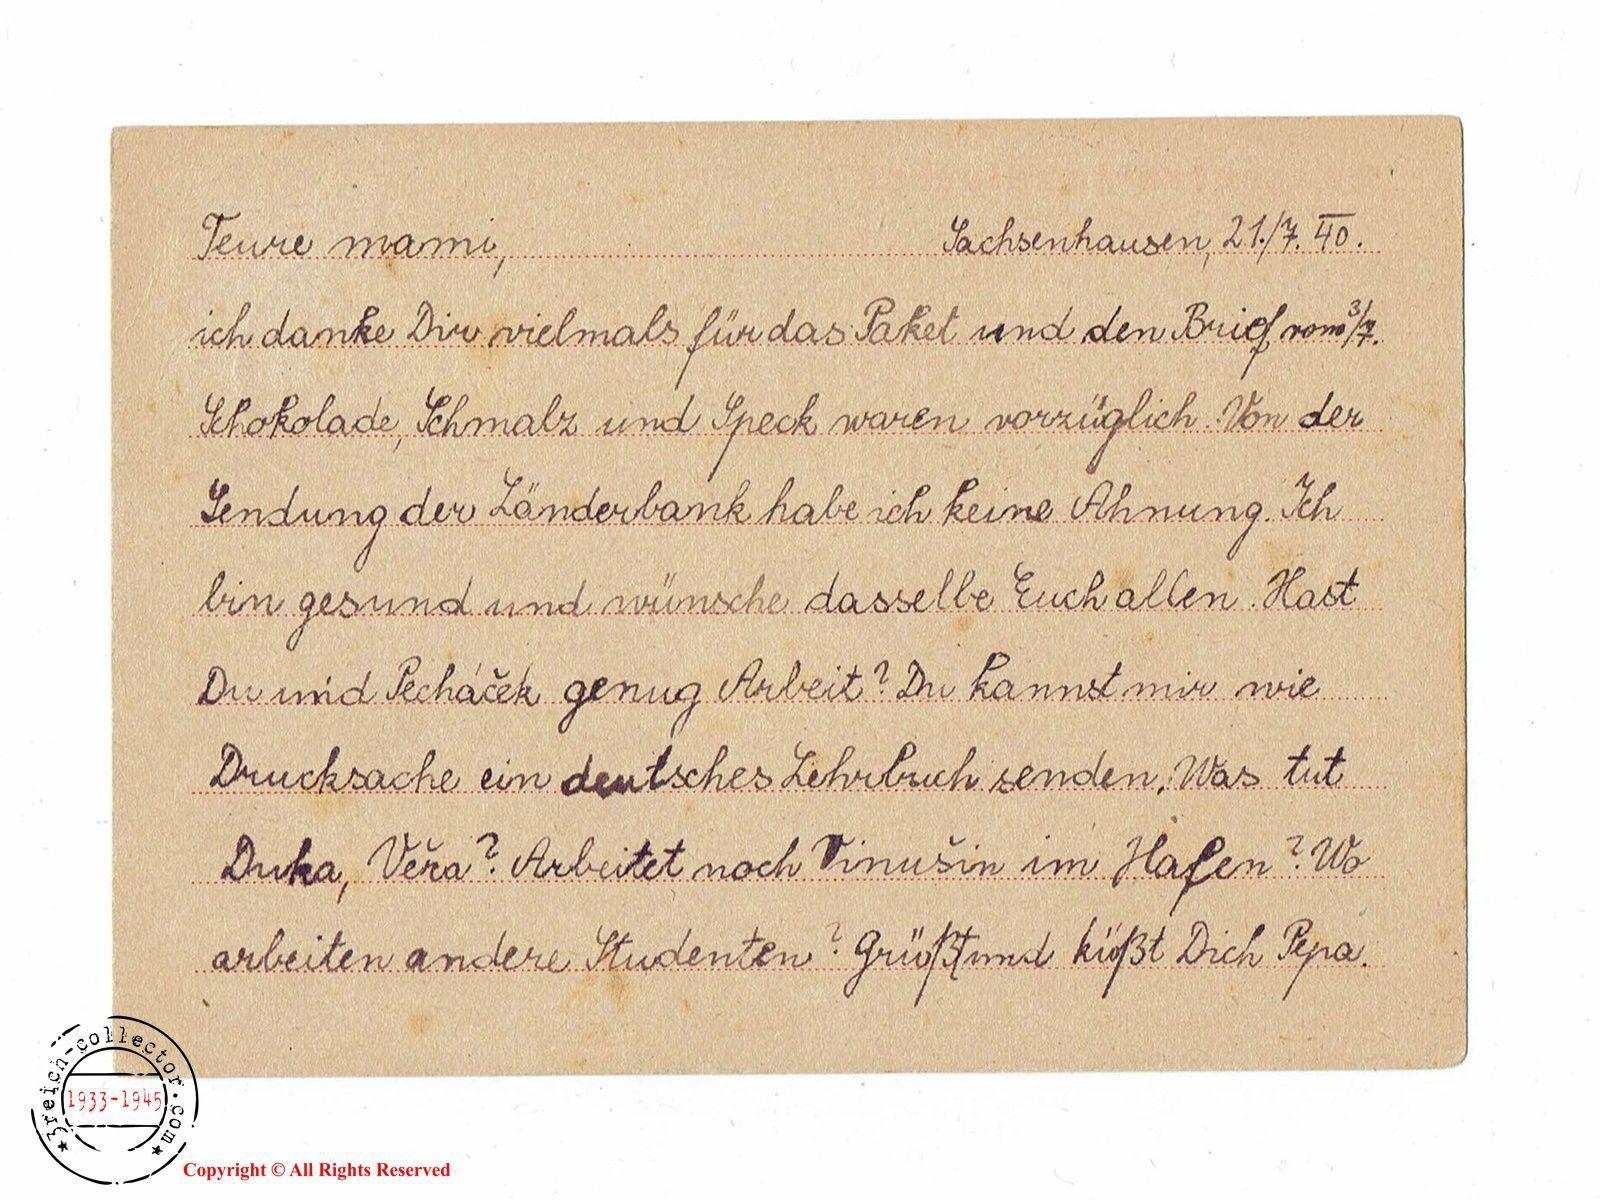 Teure mami, Sachsenhausen, 21./7. 40.
ich danke Dir vielmals für das Paket und den Brief vom 3/7.
Schokolade, Schmalz und Speck waren vorzüglich. Von der
Sendung der Länderbank habe ich keine Ahnung. Ich
bin gesund und wünsche dasselbe Euch allen. Hast
Du und Pecháček genug Arbeit? Du kannst mir wie
Drucksache ein deutsches Lehrbuch senden. Was tut
Duka, Věra? Arbeitet noch Vinušin im Hafen? Wo
arbeiten andere Studenten? Grüßt und küßt Dich Pepa.
3reich-collector.com
1933-1945
Copyright © All Rights Reserved